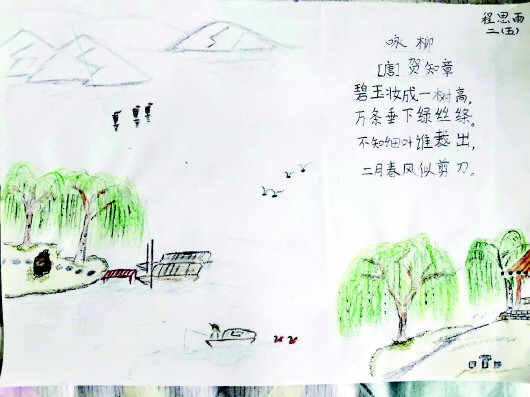 程思雨
二(五)
咏柳
[唐]贺知章
碧玉妆成一树高,
万条垂下绿丝绦。
不知细叶谁裁出,
二月春风似剪刀。